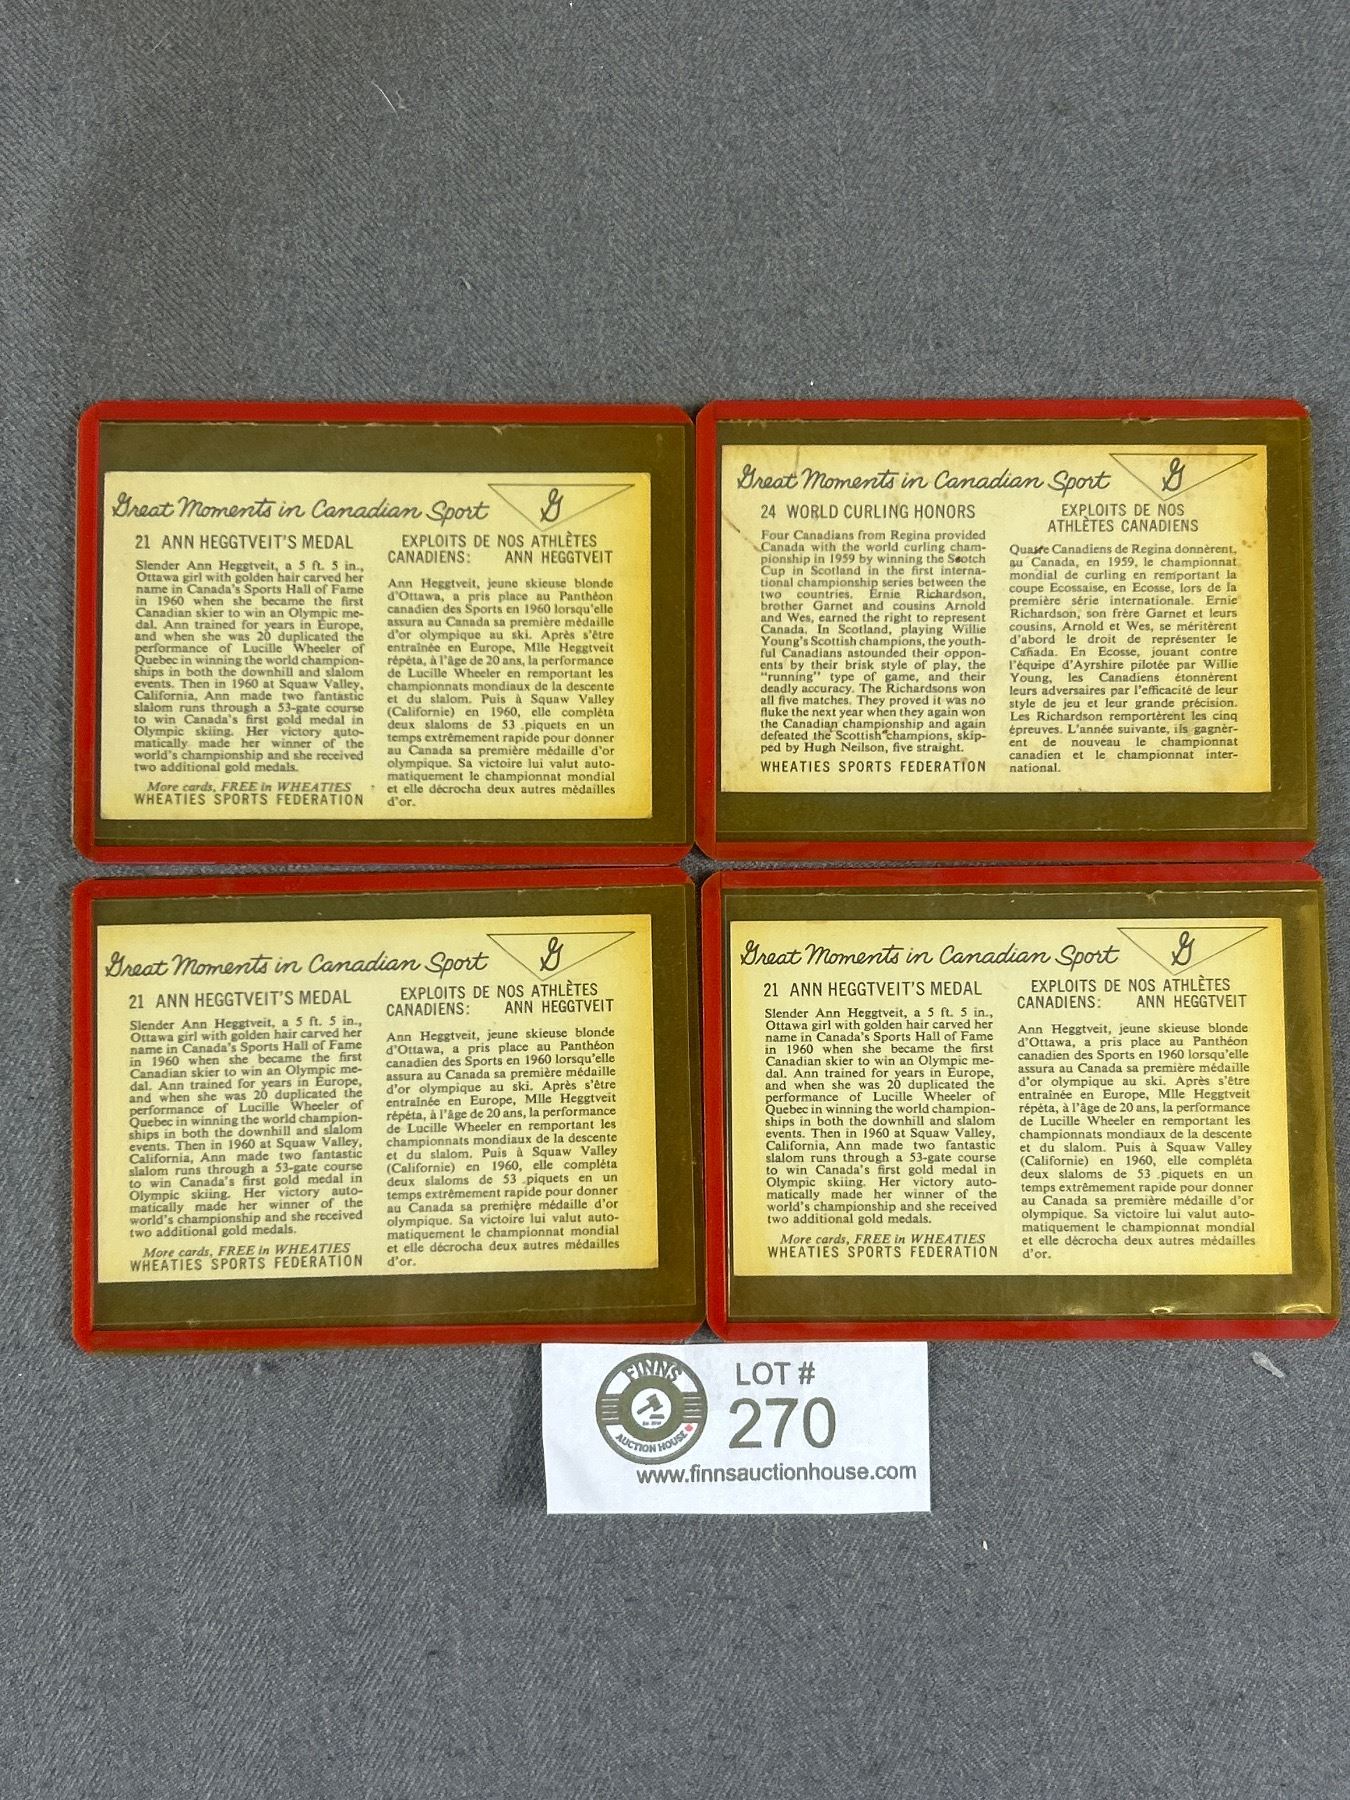 Great Moments in Canadian Sport
G
21 ANN HEGGTVEIT'S MEDAL
Slender Ann Heggtveit, a 5 ft. 5 in.,
Ottawa girl with golden hair carved her
name in Canada's Sports Hall of Fame
in 1960 when she became the first
Canadian skier to win an Olympic me-
dal. Ann trained for years in Europe,
and when she was 20 duplicated the
performance of Lucille Wheeler of
Quebec in winning the world champion-
ships in both the downhill and slalom
events. Then in 1960 at Squaw Valley,
California, Ann made two fantastic
slalom runs through a 53-gate course
to win Canada's first gold medal in
Olympic skiing. Her victory auto-
matically made her winner of the
world's championship and she received
two additional gold medals.
More cards, FREE in WHEATIES
WHEATIES SPORTS FEDERATION
EXPLOITS DE NOS ATHLÈTES
CANADIENS: ANN HEGGTVEIT
Ann Heggtveit, jeune skieuse blonde
d'Ottawa, a pris place au Panthéon
canadien des Sports en 1960 lorsqu'elle
assura au Canada sa première médaille
d'or olympique au ski. Après s'être
entraînée en Europe, Mlle Heggtveit
répéta, à l'âge de 20 ans, la performance
de Lucille Wheeler en remportant les
championnats mondiaux de la descente
et du slalom. Puis à Squaw Valley
(Californie) en 1960, elle compléta
deux slaloms de 53 piquets en un
temps extrêmement rapide pour donner
au Canada sa première médaille d'or
olympique. Sa victoire lui valut auto-
matiquement le championnat mondial
et elle décrocha deux autres médailles
d'or.
Great Moments in Canadian Sport
G
24 WORLD CURLING HONORS
Four Canadians from Regina provided
Canada with the world curling cham-
pionship in 1959 by winning the Scotch
Cup in Scotland in the first interna-
tional championship series between the
two countries. Ernie Richardson,
brother Garnet and cousins Arnold
and Wes, earned the right to represent
Canada. In Scotland, playing Willie
Young's Scottish champions, the youth-
ful Canadians astounded their oppon-
ents by their brisk style of play, the
"running" type of game, and their
deadly accuracy. The Richardsons won
all five matches. They proved it was no
fluke the next year when they again won
the Canadian championship and again
defeated the Scottish champions, skip-
ped by Hugh Neilson, five straight.
WHEATIES SPORTS FEDERATION
EXPLOITS DE NOS
ATHLÈTES CANADIENS
Quatre Canadiens de Regina donnèrent,
au Canada, en 1959, le championnat
mondial de curling en remportant la
coupe Ecossaise, en Ecosse, lors de la
première série internationale. Ernie
Richardson, son frère Garnet et leurs
cousins, Arnold et Wes, se méritèrent
d'abord le droit de représenter le
Canada. En Ecosse, jouant contre
l'équipe d'Ayrshire pilotée par Willie
Young, les Canadiens étonnèrent
leurs adversaires par l'efficacité de leur
style de jeu et leur grande précision.
Les Richardson remportèrent les cinq
épreuves. L'année suivante, ils gagnèr-
ent de nouveau le championnat
canadien et le championnat inter-
national.
Great Moments in Canadian Sport
G
21 ANN HEGGTVEIT'S MEDAL
Slender Ann Heggtveit, a 5 ft. 5 in.,
Ottawa girl with golden hair carved her
name in Canada's Sports Hall of Fame
in 1960 when she became the first
Canadian skier to win an Olympic me-
dal. Ann trained for years in Europe,
and when she was 20 duplicated the
performance of Lucille Wheeler of
Quebec in winning the world champion-
ships in both the downhill and slalom
events. Then in 1960 at Squaw Valley,
California, Ann made two fantastic
slalom runs through a 53-gate course
to win Canada's first gold medal in
Olympic skiing. Her victory auto-
matically made her winner of the
world's championship and she received
two additional gold medals.
More cards, FREE in WHEATIES
WHEATIES SPORTS FEDERATION
EXPLOITS DE NOS ATHLÈTES
CANADIENS: ANN HEGGTVEIT
Ann Heggtveit, jeune skieuse blonde
d'Ottawa, a pris place au Panthéon
canadien des Sports en 1960 lorsqu'elle
assura au Canada sa première médaille
d'or olympique au ski. Après s'être
entraînée en Europe, Mlle Heggtveit
répéta, à l'âge de 20 ans, la performance
de Lucille Wheeler en remportant les
championnats mondiaux de la descente
et du slalom. Puis à Squaw Valley
(Californie) en 1960, elle compléta
deux slaloms de 53 piquets en un
temps extrêmement rapide pour donner
au Canada sa première médaille d'or
olympique. Sa victoire lui valut auto-
matiquement le championnat mondial
et elle décrocha deux autres médailles
d'or.
Great Moments in Canadian Sport
G
21 ANN HEGGTVEIT'S MEDAL
Slender Ann Heggtveit, a 5 ft. 5 in.,
Ottawa girl with golden hair carved her
name in Canada's Sports Hall of Fame
in 1960 when she became the first
Canadian skier to win an Olympic me-
dal. Ann trained for years in Europe,
and when she was 20 duplicated the
performance of Lucille Wheeler of
Quebec in winning the world champion-
ships in both the downhill and slalom
events. Then in 1960 at Squaw Valley,
California, Ann made two fantastic
slalom runs through a 53-gate course
to win Canada's first gold medal in
Olympic skiing. Her victory auto-
matically made her winner of the
world's championship and she received
two additional gold medals.
More cards, FREE in WHEATIES
WHEATIES SPORTS FEDERATION
EXPLOITS DE NOS ATHLÈTES
CANADIENS: ANN HEGGTVEIT
Ann Heggtveit, jeune skieuse blonde
d'Ottawa, a pris place au Panthéon
canadien des Sports en 1960 lorsqu'elle
assura au Canada sa première médaille
d'or olympique au ski. Après s'être
entraînée en Europe, Mlle Heggtveit
répéta, à l'âge de 20 ans, la performance
de Lucille Wheeler en remportant les
championnats mondiaux de la descente
et du slalom. Puis à Squaw Valley
(Californie) en 1960, elle compléta
deux slaloms de 53 piquets en un
temps extrêmement rapide pour donner
au Canada sa première médaille d'or
olympique. Sa victoire lui valut auto-
matiquement le championnat mondial
et elle décrocha deux autres médailles
d'or.
FINNS
AUCTION HOUSE
LOT #
270
www.finnsauctionhouse.com